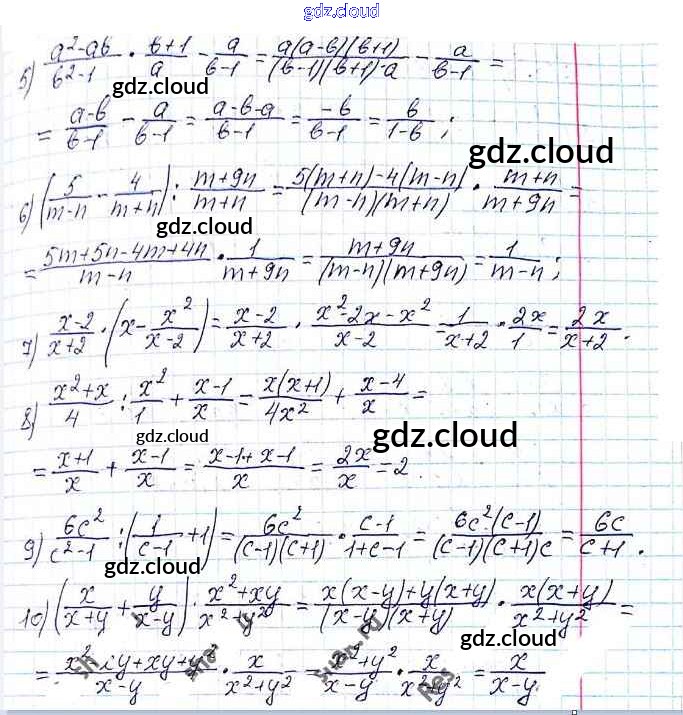 gdz.cloud
5) (a²-ab)/(b²-1) · (b+1)/a - a/(b-1) = (a(a-b)(b+1))/((b-1)(b+1)·a) - a/(b-1) =
gdz.cloud
= (a-b)/(b-1) - a/(b-1) = (a-b-a)/(b-1) = (-b)/(b-1) = b/(1-b);
gdz.cloud
6) (5/(m-n) - 4/(m+n)) : (m+9n)/(m+n) = (5(m+n)-4(m-n))/((m-n)(m+n)) · (m+n)/(m+9n) =
gdz.cloud
= (5m+5n-4m+4n)/(m-n) · 1/(m+9n) = (m+9n)/((m-n)(m+9n)) = 1/(m-n);
7) (x-2)/(x+2) · (x - x²/(x-2)) = (x-2)/(x+2) · (x²-2x-x²)/(x-2) = 1/(x+2) · 2x/1 = 2x/(x+2).
8) (x²+x)/4 : x²/1 + (x-1)/x = (x(x+1))/(4x²) + (x-4)/x =
gdz.cloud
gdz.cloud
= (x+1)/x + (x-1)/x = (x-1+x-1)/x = 2x/x = 2.
9) 6c²/(c²-1) : (1/(c-1) + 1) = 6c²/((c-1)(c+1)) · (c-1)/(1+c-1) = (6c²(c-1))/((c-1)(c+1)c) = 6c/(c+1).
gdz.cloud
gdz.cloud
10) (x/(x+y) + y/(x-y)) · (x²+xy)/(x²+y²) = (x(x-y)+y(x+y))/((x-y)(x+y)) · (x(x+y))/(x²+y²) =
gdz.cloud
= (x²-xy+xy+y²)/(x-y) · x/(x²+y²) = (x²+y²)/(x-y) · x/(x²+y²) = x/(x-y).